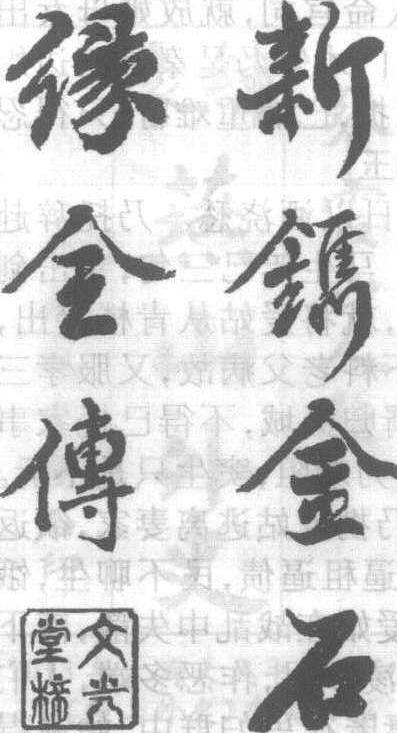 新鐫金石
緣全傳
文光堂梓